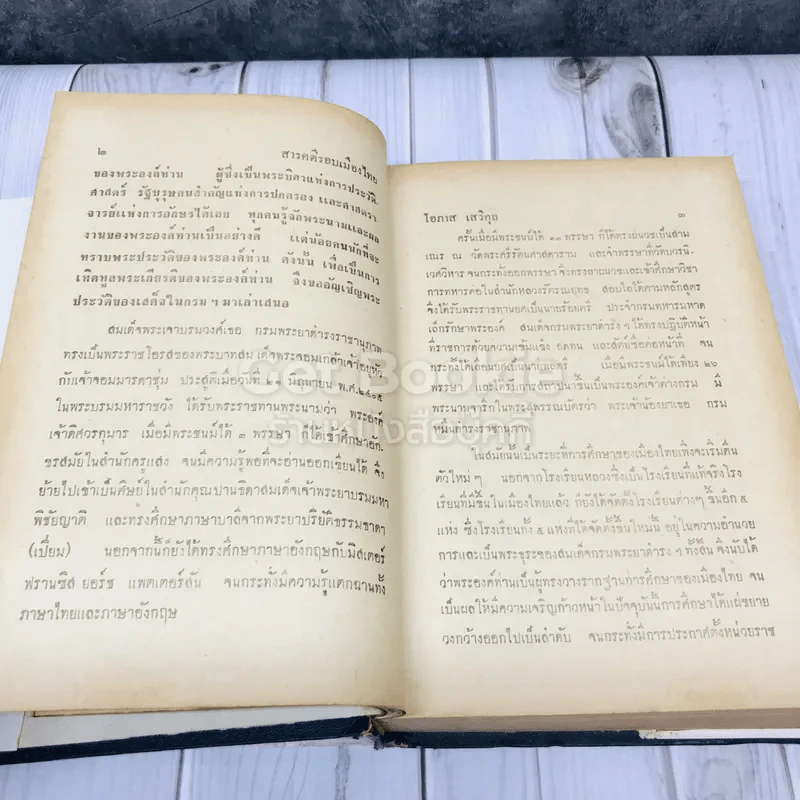 ๒ สารคดีรอบเมืองไทย
ของพระองค์ท่าน ผู้ซึ่งเป็นพระบิดาแห่งการประวัติ-
ศาสตร์ รัฐบุรุษคนสำคัญแห่งการปกครอง และศาสตรา-
จารย์แห่งการอักษรได้เลย ทุกคนรู้จักพระนามและผล
งานของพระองค์ท่านเป็นอย่างดี แต่น้อยคนนักที่จะ
ทราบพระประวัติของพระองค์ท่าน ดังนั้น เพื่อเป็นการ
เทิดทูลพระเกียรติของพระองค์ท่าน จึงขออัญเชิญพระ
ประวัติของเสด็จในกรม ฯ มาเล่าเสนอ
สมเด็จพระเจ้าบรมวงศ์เธอ กรมพระยาดำรงราชานุภาพ
ทรงเป็นพระราชโอรสของพระบาทสมเด็จพระจอมเกล้าเจ้าอยู่หัว
กับเจ้าจอมมารดาชุ่ม ประสูติเมื่อวันที่ ๒๑ มิถุนายน พ.ศ.๒๔๐๕
ในพระบรมมหาราชวัง ได้รับพระราชทานพระนามว่า พระองค์
เจ้าดิศวรกุมาร เมื่อมีพระชนม์ได้ ๓ พรรษา ก็ได้เข้าศึกษาอัก-
ษรสมัยในสำนักครูแสง จนมีความรู้พอที่จะอ่านออกเขียนได้ จึง
ย้ายไปเข้าเป็นศิษย์ในสำนักคุณปานธิดาสมเด็จเจ้าพระยาบรมมหา
พิชัยญาติ และทรงศึกษาภาษาบาลีจากพระยาปริยัติธรรมธาดา
(เปี่ยม) นอกจากนี้ก็ยังได้ทรงศึกษาภาษาอังกฤษกับมิสเตอร์
ฟรานซิส ยอร์ช แพตเตอร์สัน จนกระทั่งมีความรู้แตกฉานทั้ง
ภาษาไทยและภาษาอังกฤษ
โอภาส เสวิกุล ๓
ครั้นเมื่อมีพระชนม์ได้ ๑๓ พรรษา ก็ได้ทรงผนวชเป็นสาม
เณร ณ วัดพระศรีรัตนศาสดาราม และจำพรรษาที่วัดบวรนิ-
เวศวิหาร จนกระทั่งออกพรรษา จึงทรงลาผนวชและเข้าศึกษาวิชา
การทหารต่อในสำนักหลวงรัฐรณยุทธ สอบไล่ได้ตามหลักสูตร
จึงได้รับพระราชทานยศเป็นนายร้อยตรี ประจำกรมทหารมหาด
เล็กรักษาพระองค์ สมเด็จกรมพระยาดำรง ฯ ได้ทรงปฏิบัติหน้า
ที่ราชการด้วยความเข้มแข็ง อดทน และสัตย์ซื่อต่อหน้าที่ จน
กระทั่งได้เลื่อนยศเป็นนายพลตรี เมื่อมีพระชนม์ได้เพียง ๒๖
พรรษา และได้รับการสถาปนาขึ้นเป็นพระองค์เจ้าต่างกรม มี
พระนามจารึกในพระสุพรรณบัตรว่า พระเจ้าน้องยาเธอ กรม
หมื่นดำรงราชานุภาพ
ในสมัยนั้นเป็นระยะที่การศึกษาของเมืองไทยเพิ่งจะเริ่มตื่น
ตัวใหม่ ๆ นอกจากโรงเรียนหลวงซึ่งเป็นโรงเรียนที่แท้จริงโรง
เรียนที่มีขึ้นในเมืองไทยแล้ว ก็ยังได้จัดตั้งโรงเรียนต่างๆ ขึ้นอีก ๕
แห่ง ซึ่งโรงเรียนทั้ง ๕ แห่งที่ได้จัดตั้งขึ้นใหม่นี้ อยู่ในความอำนวย
การและเป็นพระธุระของสมเด็จกรมพระยาดำรง ฯ ทั้งสิ้น จึงนับได้
ว่าพระองค์ท่านเป็นผู้ทรงวางรากฐานการศึกษาของเมืองไทย จน
เป็นผลให้มีความเจริญก้าวหน้าในปัจจุบันนี้การศึกษาได้แผ่ขยาย
วงกว้างออกไปเป็นลำดับ จนกระทั่งมีการประกาศตั้งหน่วยราช